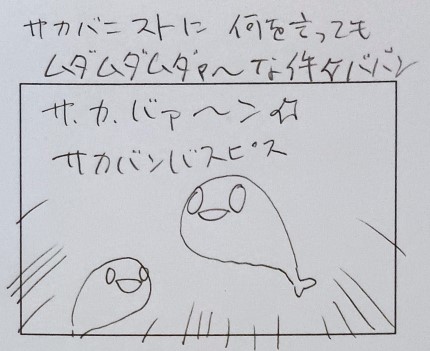 サカバニストに 何を言っても
ムダムダムダァ〜な件☆ババン
サ.カ.バァ〜ン☆
サカバンバスピス